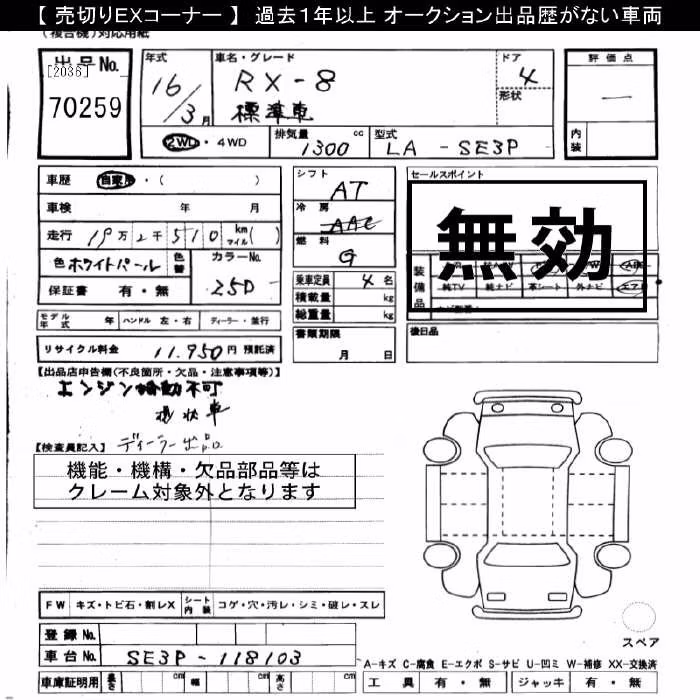 【 売切りEXコーナー 】 過去1年以上 オークション出品歴がない車両
(複合機)対応用紙
出品No. [2036] 70259
年式 16/3月
車名・グレード RX-8 標準車
ドア 4
形状
評価点 —
内装
2WD・4WD
排気量 1300 cc
型式 LA - SE3P
車歴 自家用・( )
車検 年 月
走行 19万2千510 km マイル( )
色 ホワイトパール 色替 カラーNo. 25D
保証書 有・無
シフト AT
冷房 AAC
燃料 G
乗車定員 4名
積載量 kg
総重量 kg
書類期限 月 日
セールスポイント
無効
装備品
純TV 純ナビ 革シート 外ナビ エアB
後日品
モデル年式 年 ハンドル 左・右 ディーラー・並行
リサイクル料金 11,950円 預託済
【出品店申告欄(不良箇所・欠品・注意事項等)】
エンジン始動不可
現状車
【検査員記入】 ディーラー出品
機能・機構・欠品部品等は
クレーム対象外となります
FW キズ・トビ石・割レX シート内装 コゲ・穴・汚レ・シミ・破レ・スレ
登録No.
車台No. SE3P - 118103
車庫証明用 長さ cm 幅 cm 高さ cm
スペア
A-キズ C-腐食 E-エクボ S-サビ U-凹ミ W-補修 XX-交換済
工具 有・無 ジャッキ 有・無